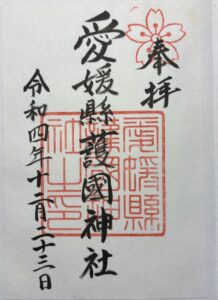 奉拝
愛媛縣護國神社
令和四年十二月二十三日
愛媛縣
護國神
社之印